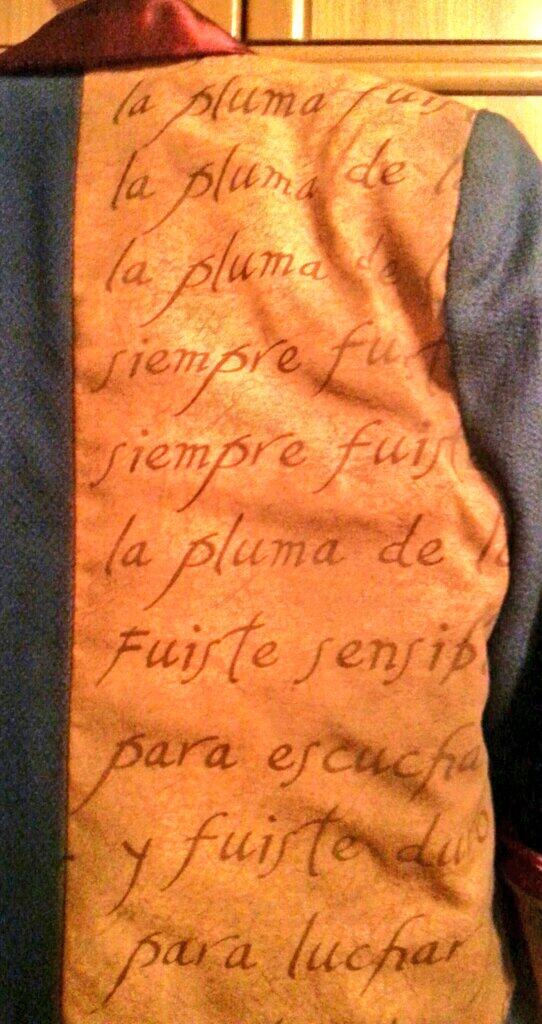 la pluma fuis
la pluma de l
la pluma de l
siempre fu
siempre fuis
la pluma de l
Fuiste sensib
para escucha
y fuiste duro
para luchar